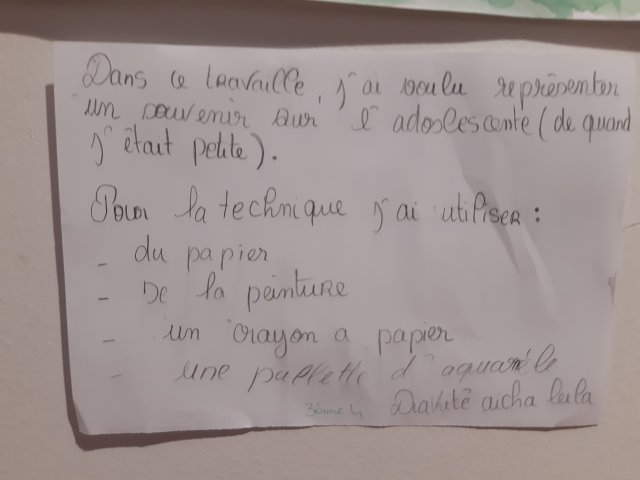 Dans ce travaille, j'ai voulu représenter
un souvenir sur l'adoslescente (de quand
j'était petite).
Pour la technique j'ai utiliser :
- du papier
- De la peinture
- un crayon a papier
- une pallette d'aquaréle
3ème 4 aicha